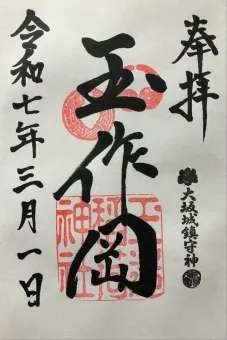 奉拝
大坂城鎮守神
玉作岡
令和七年三月一日